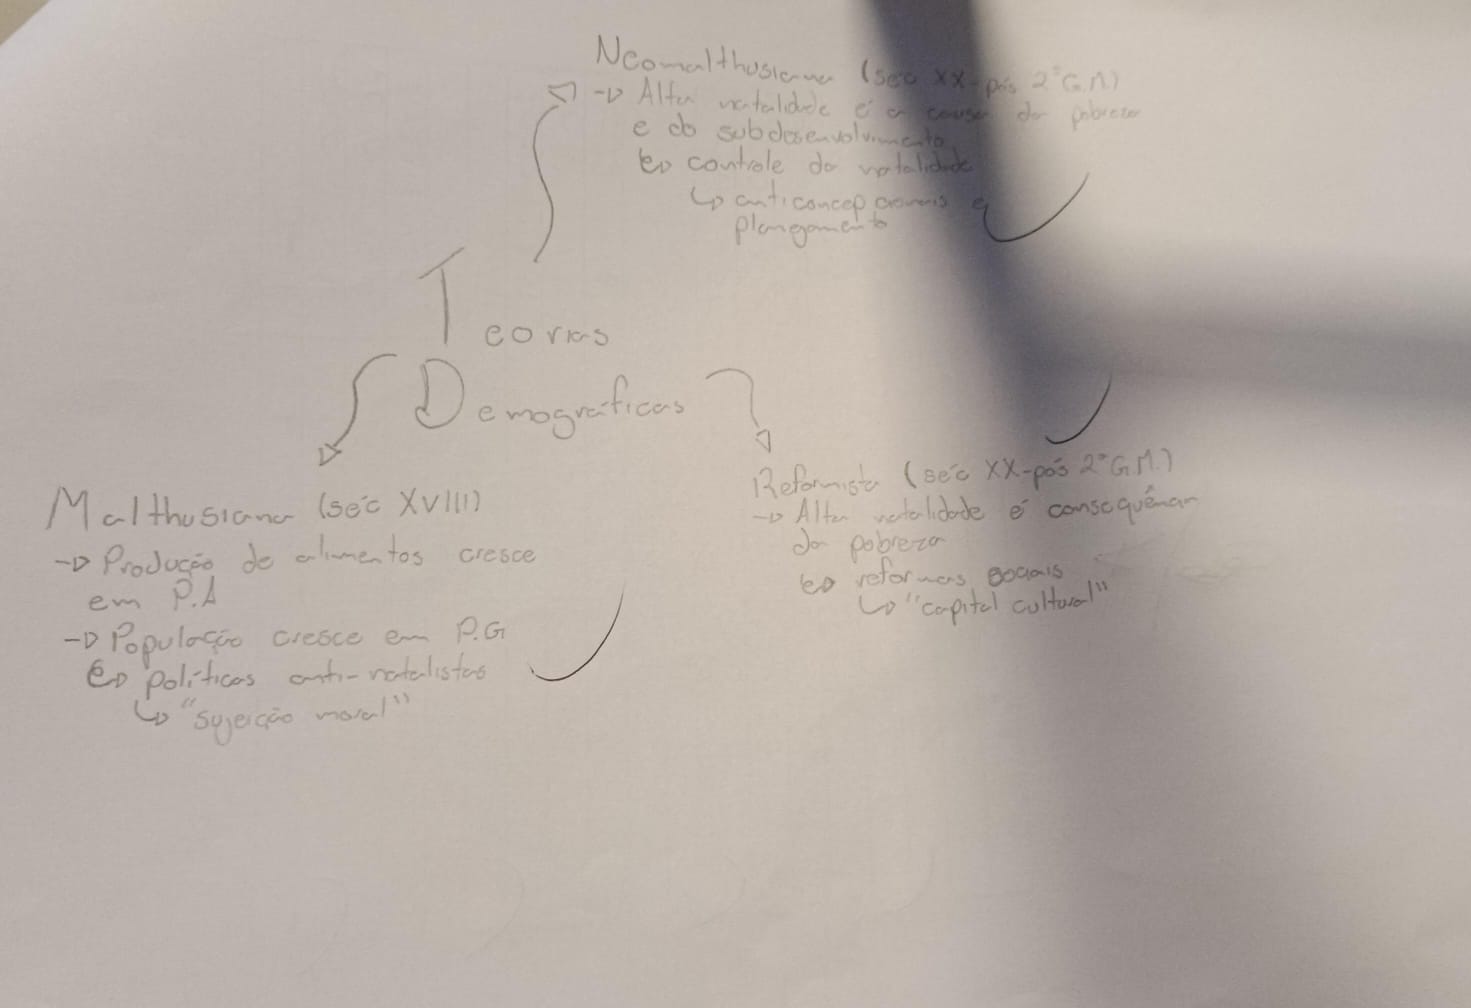 Neomalthusiana (séc XX-pós 2ªG.M)
→ Alta natalidade é a causa da pobreza
e do subdesenvolvimento
↳ controle da natalidade
↳ anticoncepcionais e
planejamento
Teorias
Demográficas
Malthusiana (séc XVIII)
→ Produção de alimentos cresce
em P.A
→ População cresce em P.G
↳ políticas anti-natalistas
↳ "sujeição moral"
Reformista (séc XX-pós 2ªG.M.)
→ Alta natalidade é consequência
da pobreza
↳ reformas sociais
↳ "capital cultural"